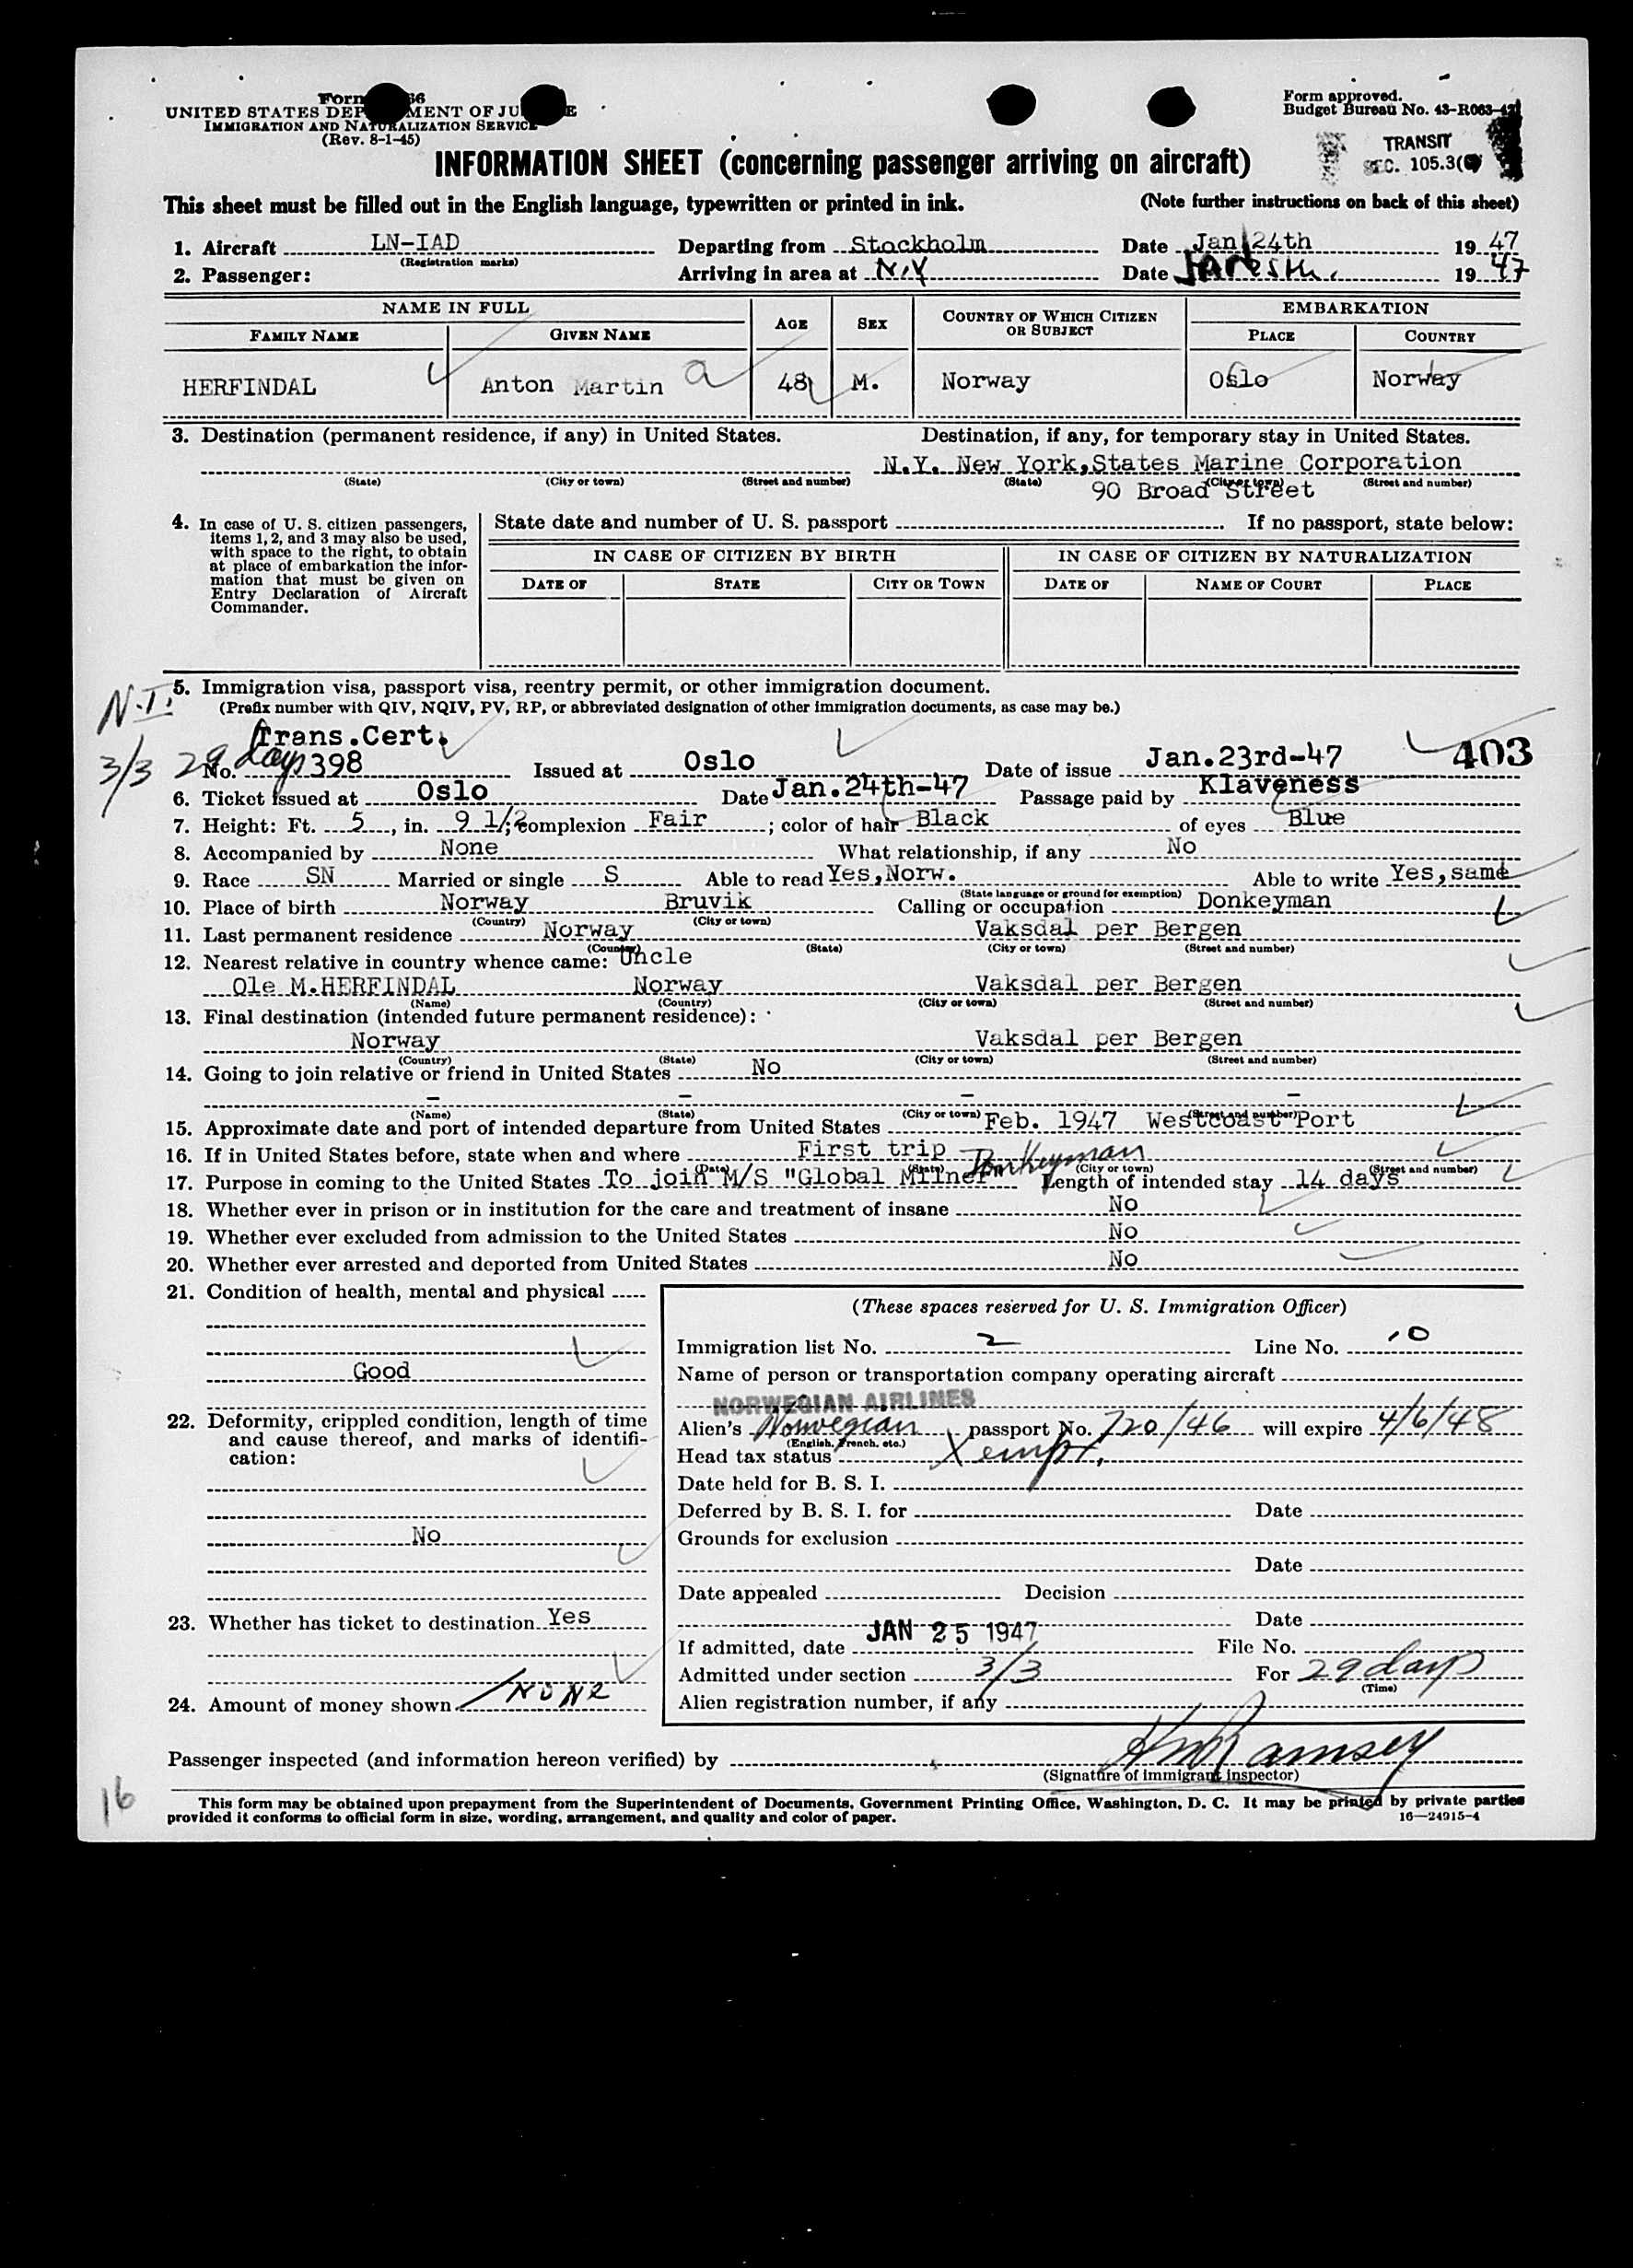 UNITED STATES DEPARTMENT OF JUSTICE
IMMIGRATION AND NATURALIZATION SERVICE
(Rev. 8-1-45)
Form approved.
Budget Bureau No. 43-R063-42
TRANSIT
SEC. 105.3(
INFORMATION SHEET (concerning passenger arriving on aircraft)
This sheet must be filled out in the English language, typewritten or printed in ink. (Note further instructions on back of this sheet)
1. Aircraft LN-IAD Departing from Stockholm Date Jan 24th 19 47
(Registration marks)
2. Passenger: Arriving in area at N.Y Date 19 47
NAME IN FULL AGE SEX COUNTRY OF WHICH CITIZEN OR SUBJECT EMBARKATION
FAMILY NAME GIVEN NAME PLACE COUNTRY
HERFINDAL Anton Martin a 48 M. Norway Oslo Norway
3. Destination (permanent residence, if any) in United States. Destination, if any, for temporary stay in United States.
N.Y. New York, States Marine Corporation
(State) (City or town) (Street and number) (State) (City or town) (Street and number)
90 Broad Street
4. In case of U. S. citizen passengers, items 1, 2, and 3 may also be used, with space to the right, to obtain at place of embarkation the information that must be given on Entry Declaration of Aircraft Commander.
State date and number of U. S. passport If no passport, state below:
IN CASE OF CITIZEN BY BIRTH IN CASE OF CITIZEN BY NATURALIZATION
DATE OF STATE CITY OR TOWN DATE OF NAME OF COURT PLACE
N.I.
5. Immigration visa, passport visa, reentry permit, or other immigration document.
(Prefix number with QIV, NQIV, PV, RP, or abbreviated designation of other immigration documents, as case may be.)
Trans.Cert.
3/3 29 days
No. 398 Issued at Oslo Date of issue Jan.23rd-47 403
6. Ticket issued at Oslo Date Jan.24th-47 Passage paid by Klaveness
7. Height: Ft. 5, in. 9 1/2; complexion Fair; color of hair Black of eyes Blue
8. Accompanied by None What relationship, if any No
9. Race SN Married or single S Able to read Yes,Norw. Able to write Yes,same
(State language or ground for exemption)
10. Place of birth Norway Bruvik Calling or occupation Donkeyman
(Country) (City or town)
11. Last permanent residence Norway Vaksdal per Bergen
(Country) (State) (City or town) (Street and number)
12. Nearest relative in country whence came: Uncle
Ole M.HERFINDAL Norway Vaksdal per Bergen
(Name) (Country) (City or town) (Street and number)
13. Final destination (intended future permanent residence):
Norway Vaksdal per Bergen
(Country) (State) (City or town) (Street and number)
14. Going to join relative or friend in United States No
- - - -
(Name) (State) (City or town) (Street and number)
15. Approximate date and port of intended departure from United States Feb. 1947 Westcoast Port
16. If in United States before, state when and where First trip Donkeyman
(Date) (State) (City or town) (Street and number)
17. Purpose in coming to the United States To join M/S "Global Milner" Length of intended stay 14 days
18. Whether ever in prison or in institution for the care and treatment of insane No
19. Whether ever excluded from admission to the United States No
20. Whether ever arrested and deported from United States No
21. Condition of health, mental and physical
Good
22. Deformity, crippled condition, length of time and cause thereof, and marks of identification:
No
23. Whether has ticket to destination Yes
24. Amount of money shown NONE
(These spaces reserved for U. S. Immigration Officer)
Immigration list No. 2 Line No. 10
Name of person or transportation company operating aircraft
NORWEGIAN AIRLINES
Alien's Norwegian passport No. 720/46 will expire 4/6/48
(English, French, etc.)
Head tax status Xempt.
Date held for B. S. I.
Deferred by B. S. I. for Date
Grounds for exclusion
Date
Date appealed Decision
Date
If admitted, date JAN 25 1947 File No.
Admitted under section 3/3 For 29 days
(Time)
Alien registration number, if any
Passenger inspected (and information hereon verified) by Ramsey
(Signature of immigrant inspector)
16
This form may be obtained upon prepayment from the Superintendent of Documents, Government Printing Office, Washington, D. C. It may be printed by private parties
provided it conforms to official form in size, wording, arrangement, and quality and color of paper.
16—24915-4